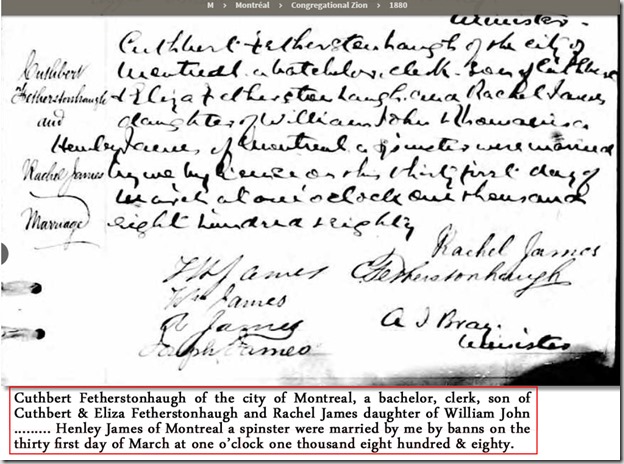 M > Montréal > Congregational Zion > 1880
Minister.
Cuthbert Fetherstonhaugh of the city of
Cuthbert
Montreal a batchelor, clerk son of Cuthbert
Fetherstonhaugh
& Eliza Fetherstonhaugh and Rachel James
and
daughter of William John
Henley James of Montreal a spinster were married
Rachel James
by me by licence on this thirty first day of
March at one o'clock one thousand
Marriage
eight hundred & eighty
Rachel James
James
C Fetherstonhaugh
Wm James
James
A J Bray
Joseph James
Minister
Cuthbert Fetherstonhaugh of the city of Montreal, a bachelor, clerk, son of
Cuthbert & Eliza Fetherstonhaugh and Rachel James daughter of William John
......... Henley James of Montreal a spinster were married by me by banns on the
thirty first day of March at one o'clock one thousand eight hundred & eighty.